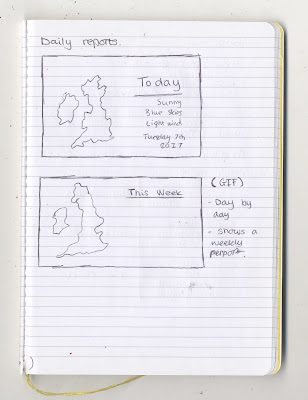 Daily reports.
Today
Sunny
Blue skies
Light wind
Tuesday 7th
2017
This Week
(GIF)
- Day by
day
- Shows a
weekly